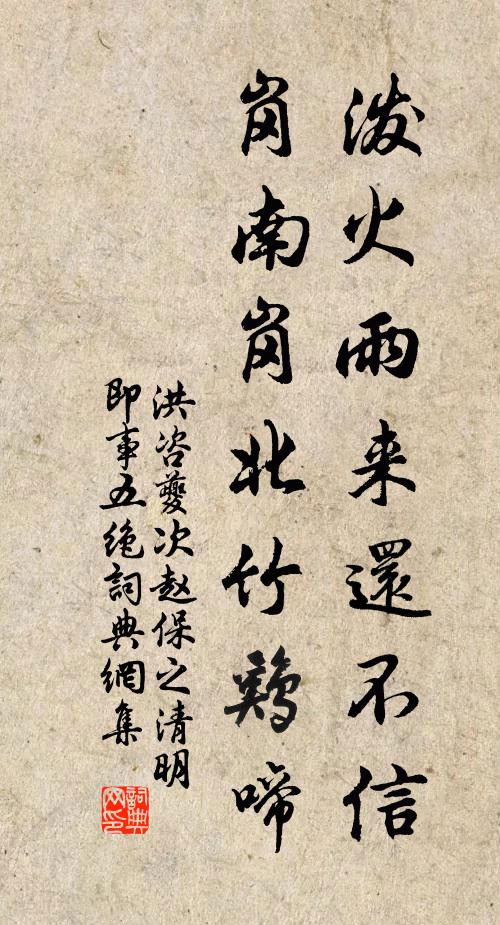 泼火雨来還不信
岗南岗北竹鷄啼
洪咨夔次赵保之清明
即事五绝詞典網集
詞典
网印